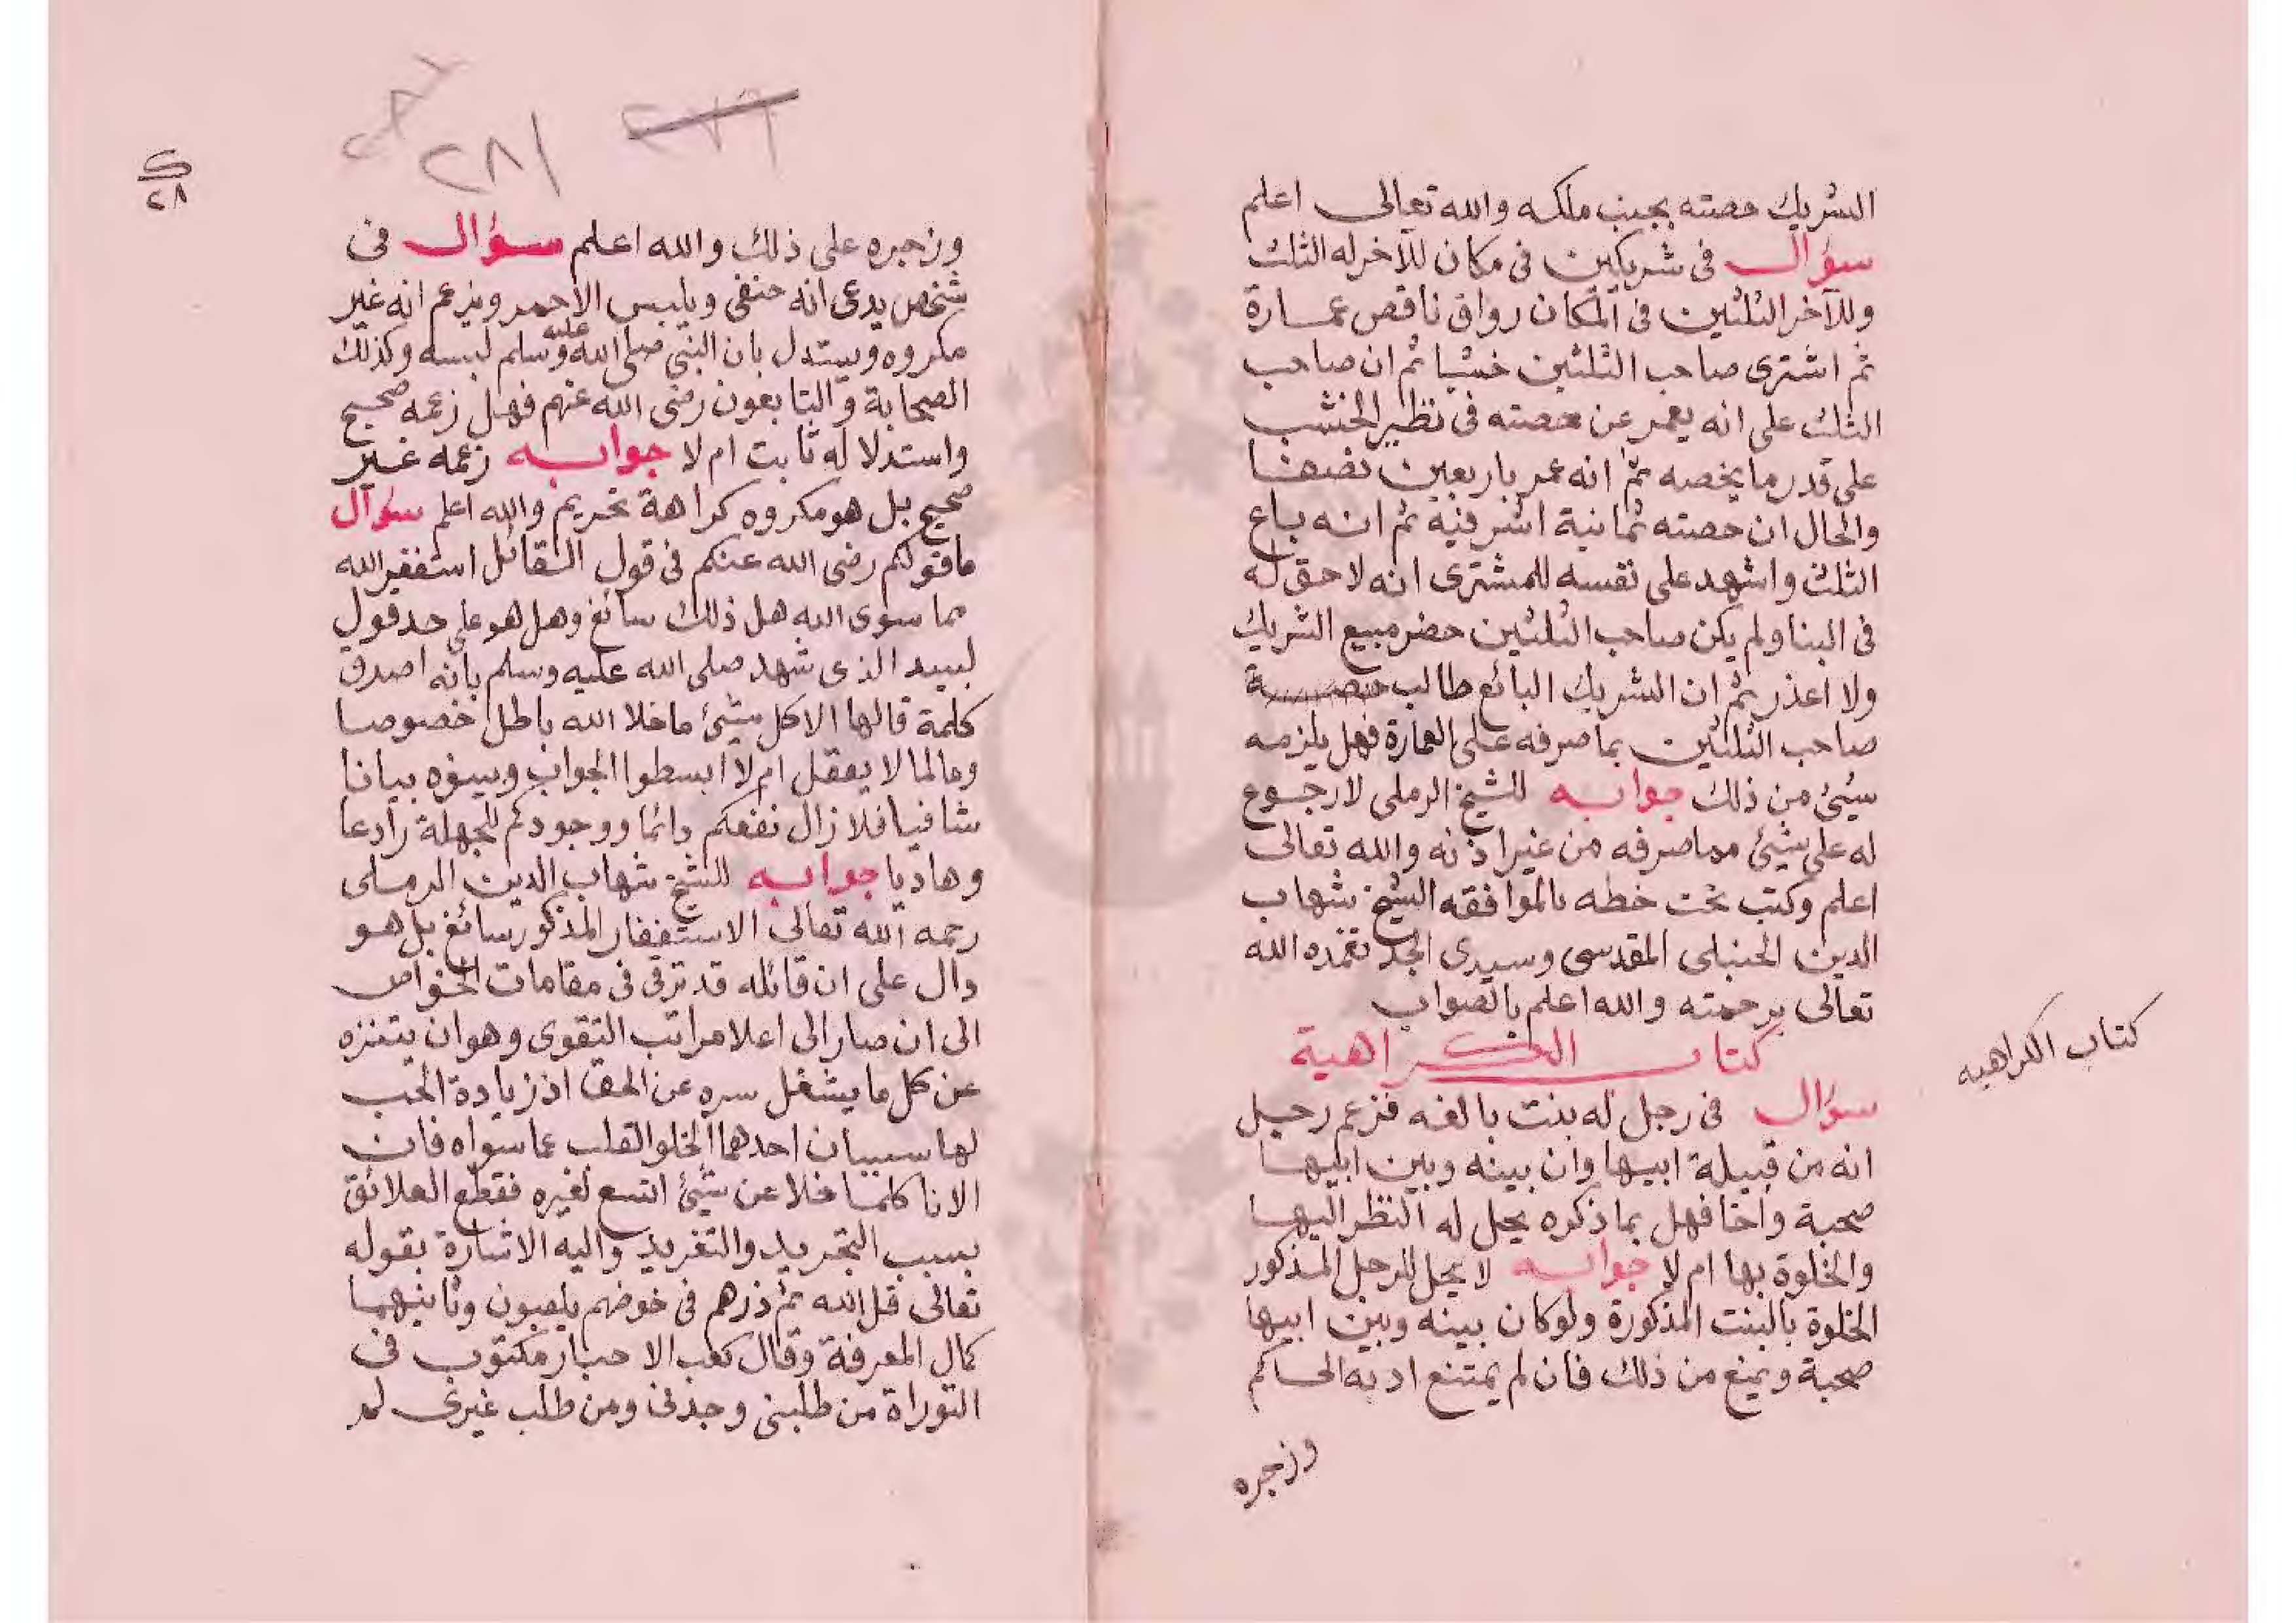 الشريك حصته بجنب ملكه والله تعالى اعلم
سؤال فى شريكين فى مكان للآخر له الثلث
وللآخر الثلثين فى المكان رواق ناقص عمارة
ثم اشترى صاحب الثلثين خشبا ثم ان صاحب
الثلث على انه يعمر عن حصته فى نظير الخشب
على قدر ما يخصه ثم انه عمر باربعين نصفا
والحال ان حصته ثمانية اشرفية ثم انه باع
الثلث واشهد على نفسه للمشترى انه لا حق له
فى البنا ولم يكن صاحب الثلثين حضر مبيع الشريك
ولا اعذر ثم ان الشريك البائع طالب
صاحب الثلثين بما صرفه على العمارة فهل يلزمه
شيئ من ذلك جوابه للشيخ الرملى لا رجوع
له على شيئ مما صرفه من غير اذنه والله تعالى
اعلم وكتب تحت خطه بالموافقه الشيخ شهاب
الدين الحنبلى المقدسى وسيدى الجد تغمده الله
تعالى برحمته والله اعلم بالصواب
كتاب الكراهية
كتاب الكراهيه
سؤال فى رجل له بنت بالغه فزعم رجل
انه من قبيلة ابيها وان بينه وبين ابيها
صحبة واخا فهل بما ذكره يحل له النظر اليها
والخلوة بها ام لا جوابه لا يحل للرجل المذكور
الخلوة بالبنت المذكورة ولو كان بينه وبين ابيها
صحبة ويمنع من ذلك فان لم يمتنع ادبه الحاكم
وزجره
٢٨١
وزجره على ذلك والله اعلم سؤال فى
شخص يدعى انه حنفى ويلبس الاحمر ويزعم انه غير
مكروه ويستدل بان النبى صلى الله عليه وسلم لبسه وكذلك
الصحابة والتابعون رضى الله عنهم فهل زعمه صحيح
واستدلاله ثابت ام لا جوابه زعمه غير
صحيح بل هو مكروه كراهة تحريم والله اعلم سؤال
ما قولكم رضى الله عنكم فى قول القائل استغفر الله
مما سوى الله هل ذلك سائغ وهل هو على حد قول
لبيد الذى شهد صلى الله عليه وسلم بانه اصدق
كلمة قالها الا كل شيئ ما خلا الله باطل خصوصا
وعالما لا يعقل ام لا ابسطوا الجواب وبينوه بيانا
شافيا فلا زال نفعكم دائما ووجودكم للجهلة رادعا
وهاديا جوابه للشيخ شهاب الدين الرملى
رحمه الله تعالى الاستغفار المذكور سائغ بل هو
دال على ان قائله قد ترقى فى مقامات الخواص
الى ان صار الى اعلا مراتب التقوى وهو ان يتنزه
عن كل ما يشغل سره عن الحق اذ زيادة الحب
لها سببان احدهما الخلو القلب عما سواه فان
الانا كلما خلا عن شيئ اتسع لغيره فقطع العلائق
بسبب التجريد والتفريد واليه الاشارة بقوله
تعالى قل الله ثم ذرهم فى خوضهم يلعبون وثانيهما
كمال المعرفة وقال كعب الاحبار مكتوب فى
التوراة من طلبنى وجدنى ومن طلب غيرى لم